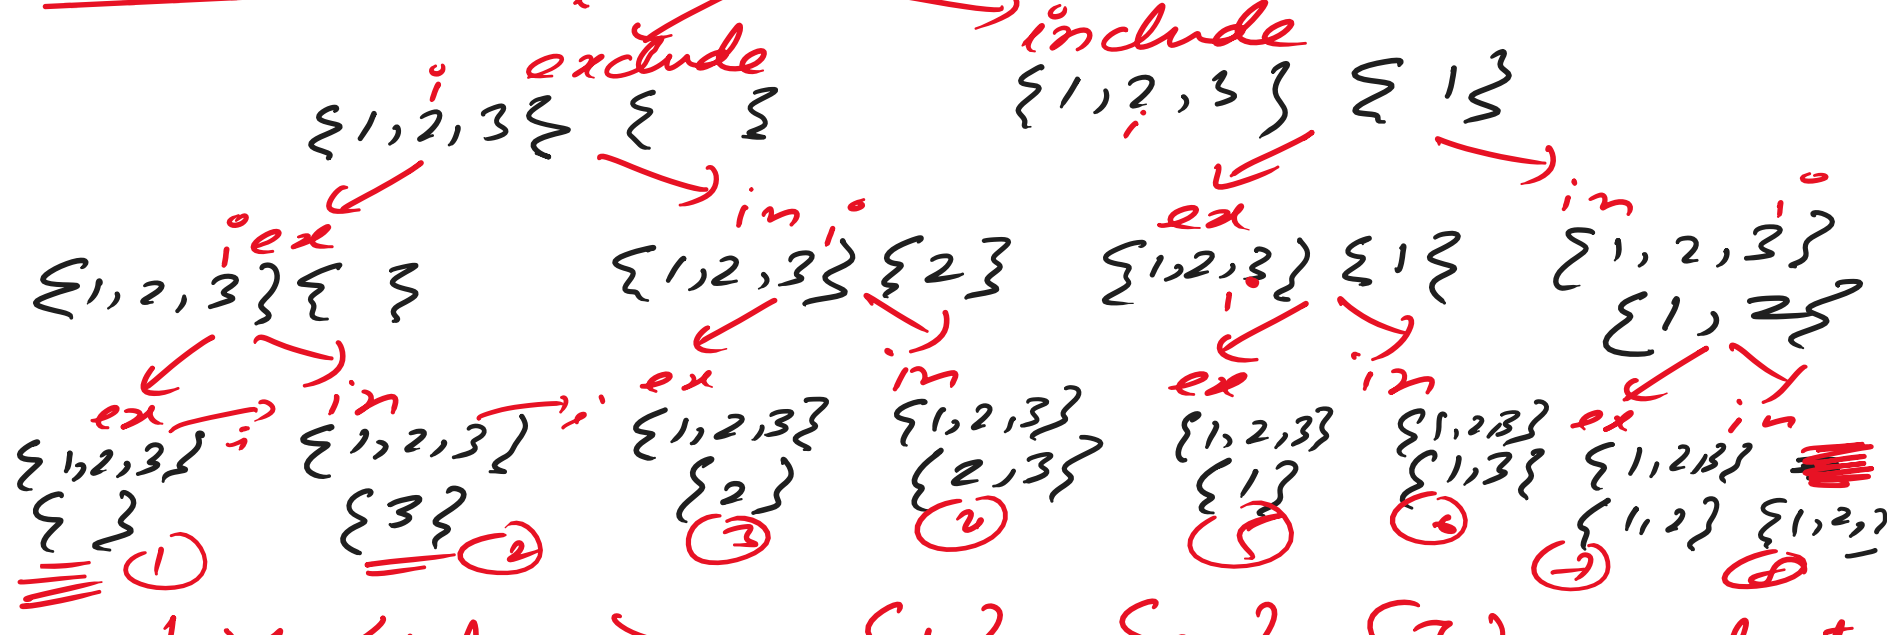 exclude include
i
{1,2,3} { } {1,2,3} {1}
i
ex in ex in
i i i
{1,2,3} { } {1,2,3} {2} {1,2,3} {1} {1,2,3}
i {1,2}
ex in ex in ex in ex in
{1,2,3} i {1,2,3} i {1,2,3} {1,2,3} {1,2,3} {1,2,3} {1,2,3}
{ } {3} {2} {2,3} {1} {1,3} {1,2} {1,2,
1 2 3 5 6 7 8